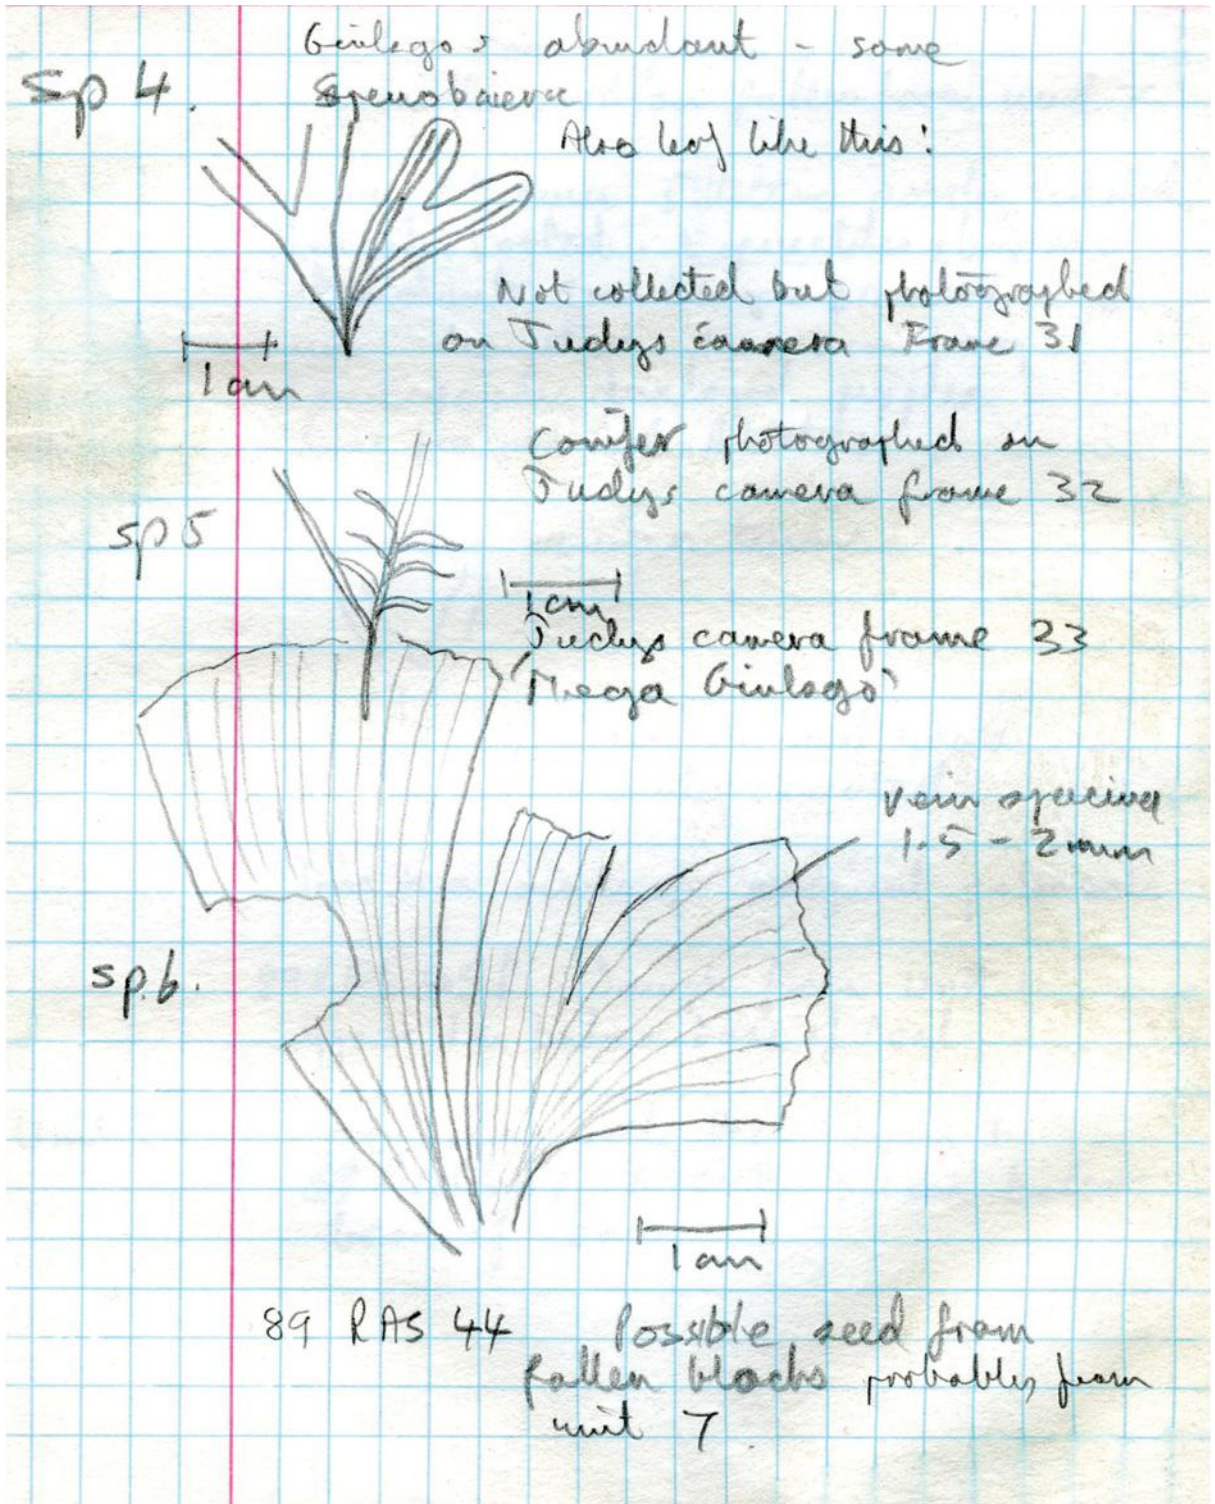 Ginkgos abundant - some
sp 4.
Spenobaiera
Also leaf like this:
Not collected but photographed
on Judys camera Frame 31
1 cm
Conifer photographed on
Judys camera frame 32
sp 5
1cm
Judys camera frame 33
'Mega Ginkgo'
vein spacing
1.5 - 2 mm
sp.6.
1 cm
89 RAS 44 Possible seed from
fallen blocks probably from
unit 7